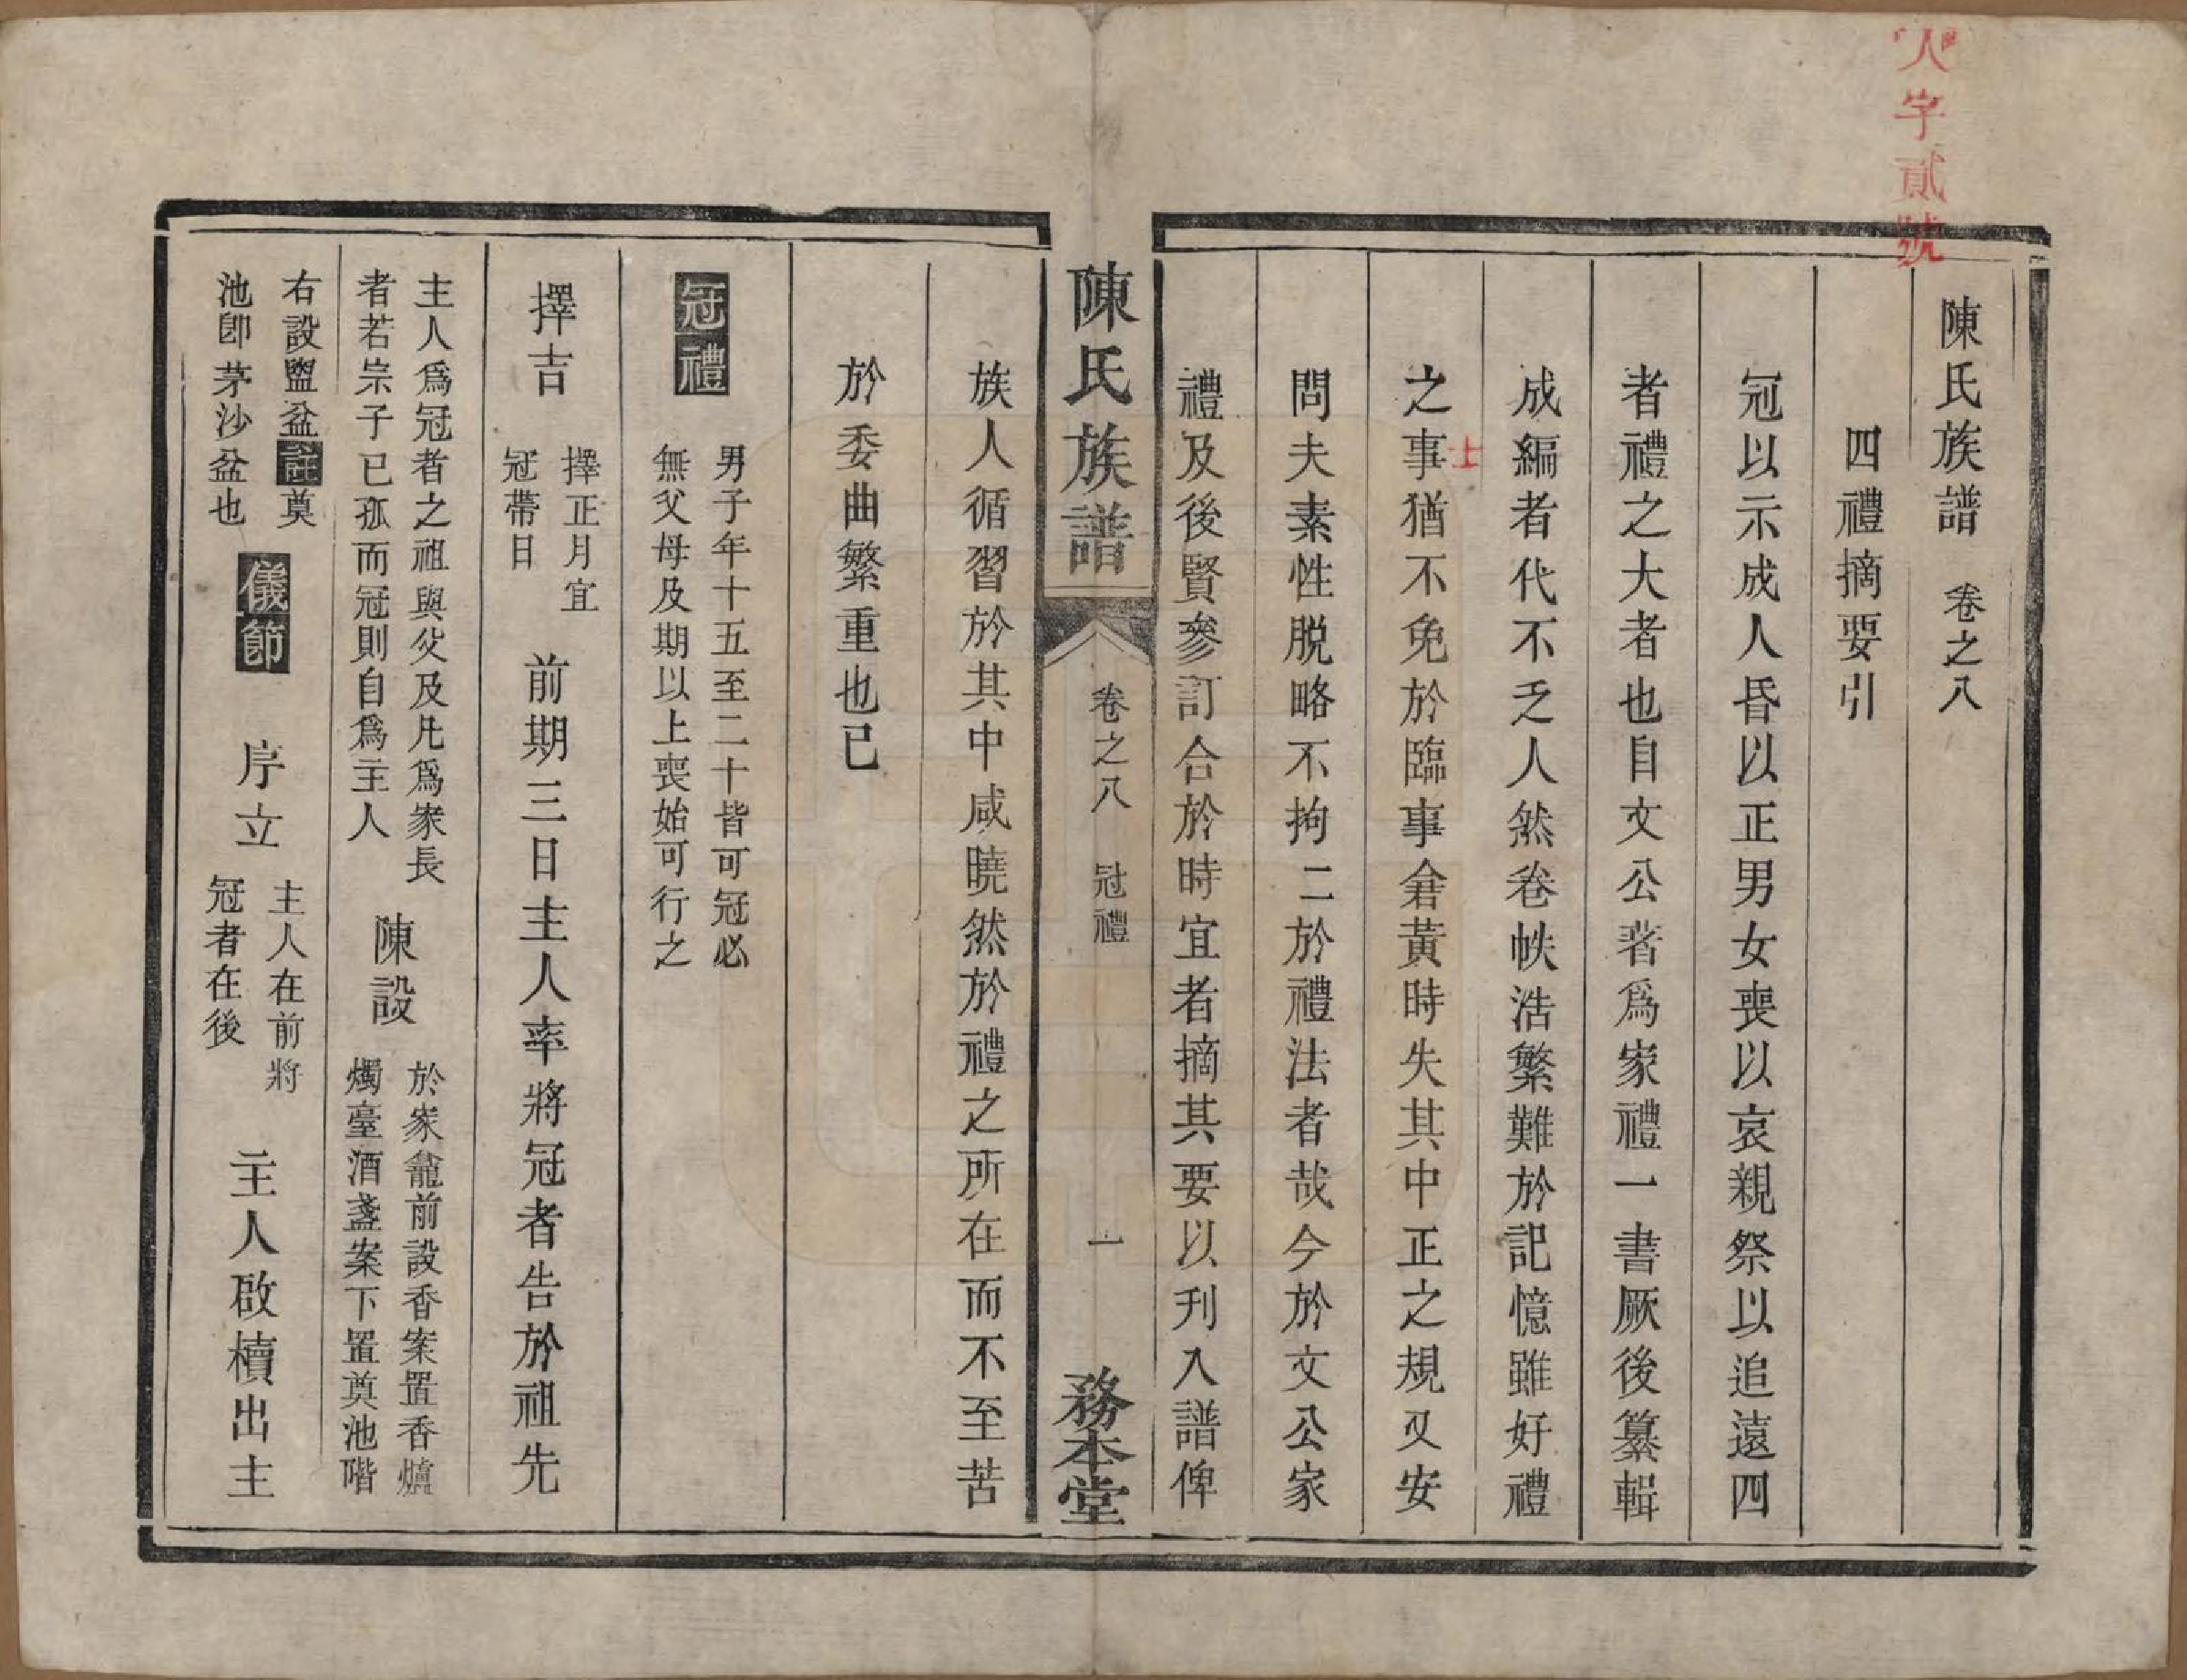 人字貳號
陳氏族譜　卷之八
四禮摘要引
冠以示成人昏以正男女喪以哀親祭以追遠四
者禮之大者也自文公著爲家禮一書厥後纂輯
成編者代不乏人然卷帙浩繁難於記憶雖好禮
士
之事猶不免於臨事倉黃時失其中正之規又安
問夫素性脱略不拘二於禮法者哉今於文公家
禮及後賢參訂合於時宜者摘其要以刋入譜俾
陳氏族譜　卷之八　冠禮　一　務本堂
族人循習於其中咸曉然於禮之所在而不至苦
於委曲繁重也已
冠禮
男子年十五至二十皆可冠必
無父母及期以上喪始可行之
擇吉
擇正月宜
冠帶日
前期三日主人率將冠者告於祖先
主人爲冠者之祖與父及凡爲家長
者若宗子已孤而冠則自爲主人
陳設
於家龕前設香案置香爐
燭臺酒盞案下置奠池階
右設盥盆註奠
池卽茅沙盆也
儀節
序立
主人在前將
冠者在後
主人啟櫝出主